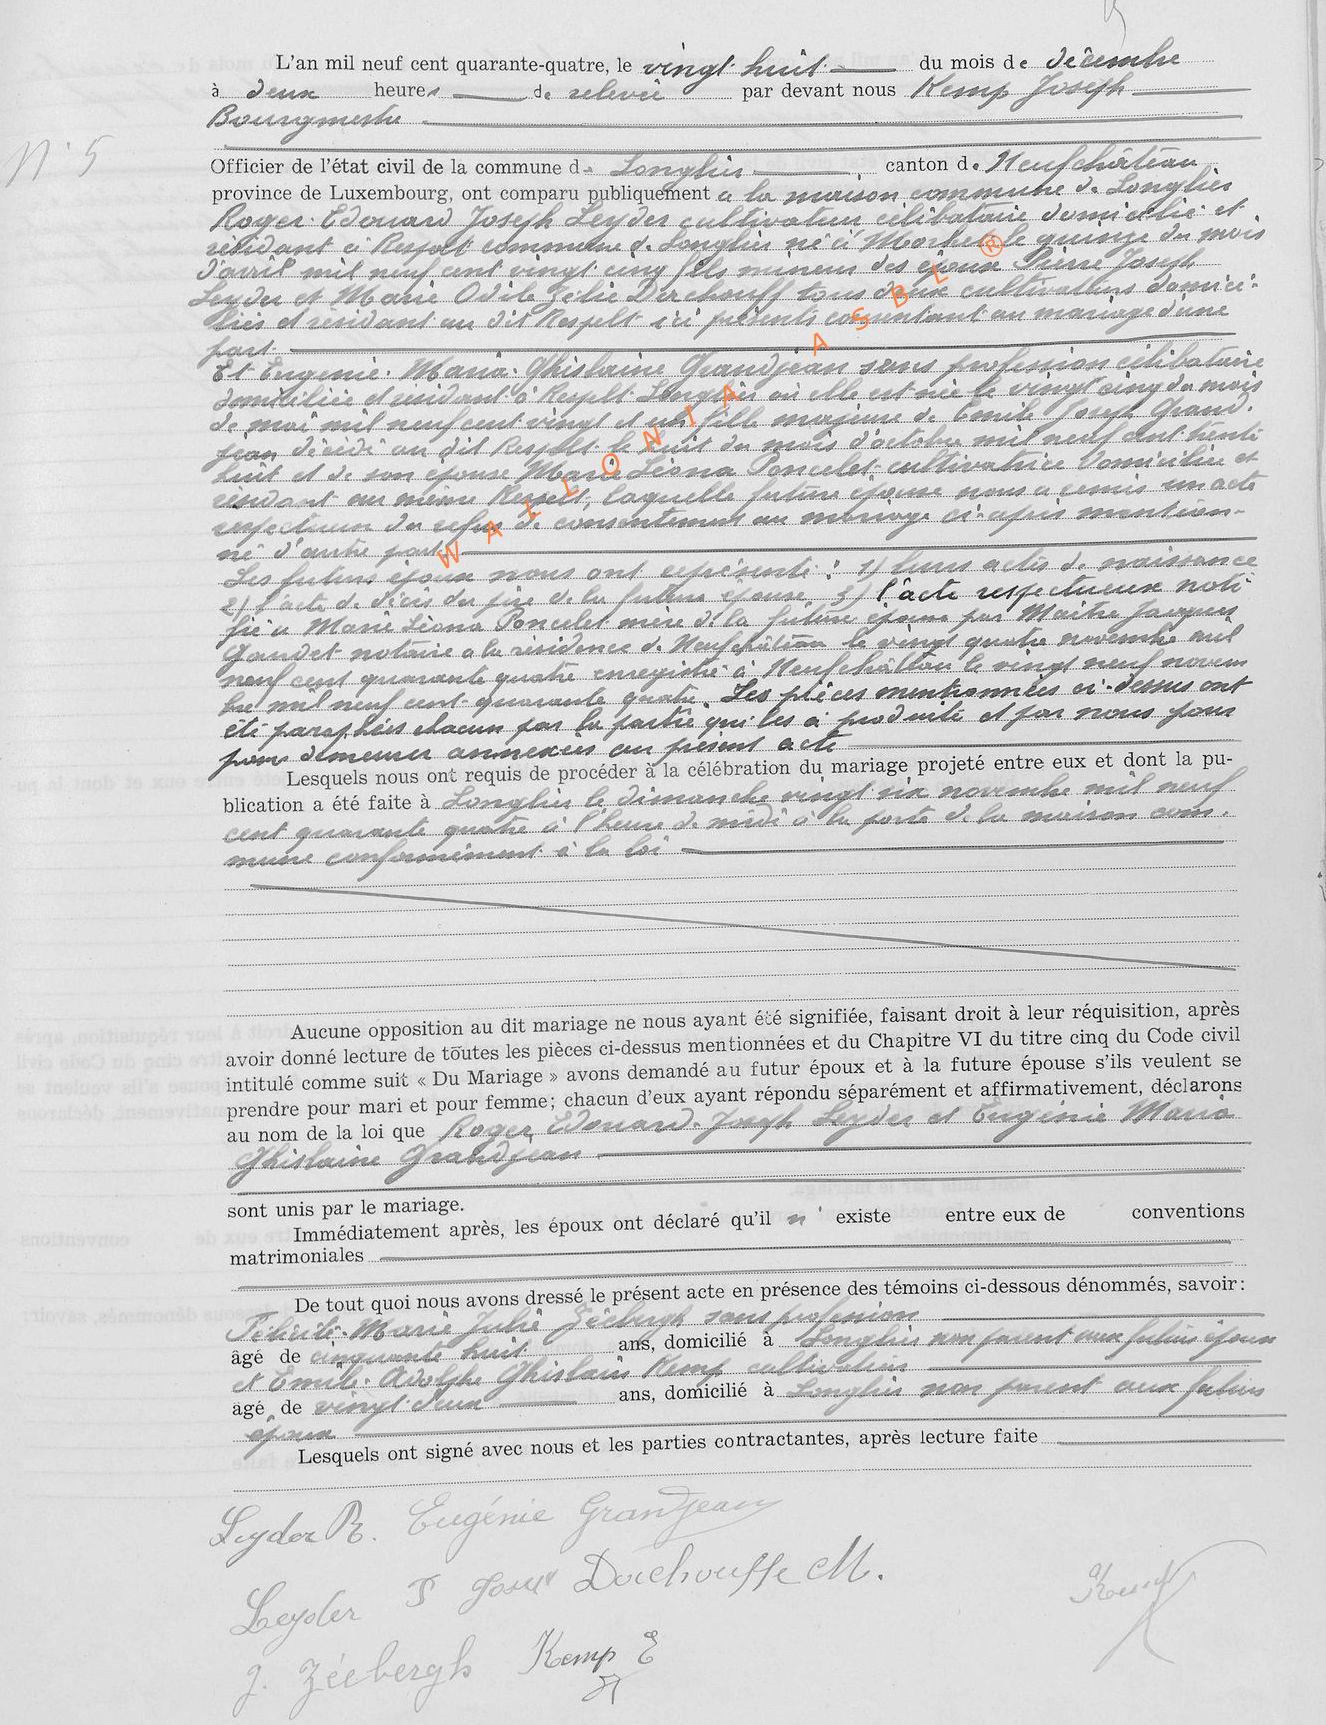 L'an mil neuf cent quarante-quatre, le vingt huit du mois de décembre
à deux heures de relevée par devant nous Kemp Joseph
Bourgmestre
N° 5
Officier de l'état civil de la commune de Longlier canton de Neufchâteau
province de Luxembourg, ont comparu publiquement a la maison commune de Longlier
Roger Edouard Joseph Leyder cultivateur célibataire domicilié et
résidant à Respelt commune de Longlier né à le quinze du mois
d'avril mil neuf cent vingt cinq fils mineur des époux Pierre Joseph
Leyder et Marie Odile Zélie Derchouff tous deux cultivateurs domici-
liés et résidant au dit Respelt ici présents consentant au mariage d'une
part.
Et Eugénie Maria Ghislaine Grandjean sans profession célibataire
domiciliée et résidant à Respelt Longlier où elle est née le vingt cinq du mois
de mai mil neuf cent vingt et un fille majeure de Emile Joseph Grand-
jean décédé au dit Respelt le huit du mois d'octobre mil neuf cent trente
huit et de son épouse Marie Léona Poncelet cultivatrice domiciliée et
résidant au même Respelt, laquelle future épouse nous a remis un acte
respectueux du refus de consentement au mariage ci-après mention-
né d'autre part.
Les futurs époux nous ont représenté : 1) leurs actes de naissance
2) l'acte de décès du père de la future épouse 3) l'acte respectueux noti
fié à Marie Léona Poncelet mère de la future épouse par Maître Jacques
notaire a la résidence de Neufchâteau le vingt quatre novembre mil
neuf cent quarante quatre enregistré à Neufchâteau le vingt neuf novem
bre mil neuf cent quarante quatre. Les pièces mentionnées ci-dessus ont
été paraphées chacun par la partie qui les a produite et par nous pour
pour demeurer annexées au présent acte
Lesquels nous ont requis de procéder à la célébration du mariage projeté entre eux et dont la pu-
blication a été faite à Longlier le dimanche vingt six novembre mil neuf
cent quarante quatre à l'heure de midi à la porte de la maison com-
mune conformément à la loi
Aucune opposition au dit mariage ne nous ayant été signifiée, faisant droit à leur réquisition, après
avoir donné lecture de toutes les pièces ci-dessus mentionnées et du Chapitre VI du titre cinq du Code civil
intitulé comme suit « Du Mariage » avons demandé au futur époux et à la future épouse s'ils veulent se
prendre pour mari et pour femme; chacun d'eux ayant répondu séparément et affirmativement, déclarons
au nom de la loi que Roger Edouard Joseph Leyder et Eugénie Maria
Ghislaine Grandjean
sont unis par le mariage.
Immédiatement après, les époux ont déclaré qu'il n' existe entre eux de conventions
matrimoniales
De tout quoi nous avons dressé le présent acte en présence des témoins ci-dessous dénommés, savoir :
Félicité Marie Julie Zéebergh sans profession
âgé de cinquante huit ans, domicilié à Longlier non parent aux futurs époux
et Emile Adolphe Ghislain Kemp cultivateur
âgé de vingt deux ans, domicilié à Longlier non parent aux futurs
époux
Lesquels ont signé avec nous et les parties contractantes, après lecture faite
Leyder R. Eugénie Grandjean
Leyder P Derchouffe M.
J. Zéebergh Kemp E
Kemp
WALLONIA ASBL ®